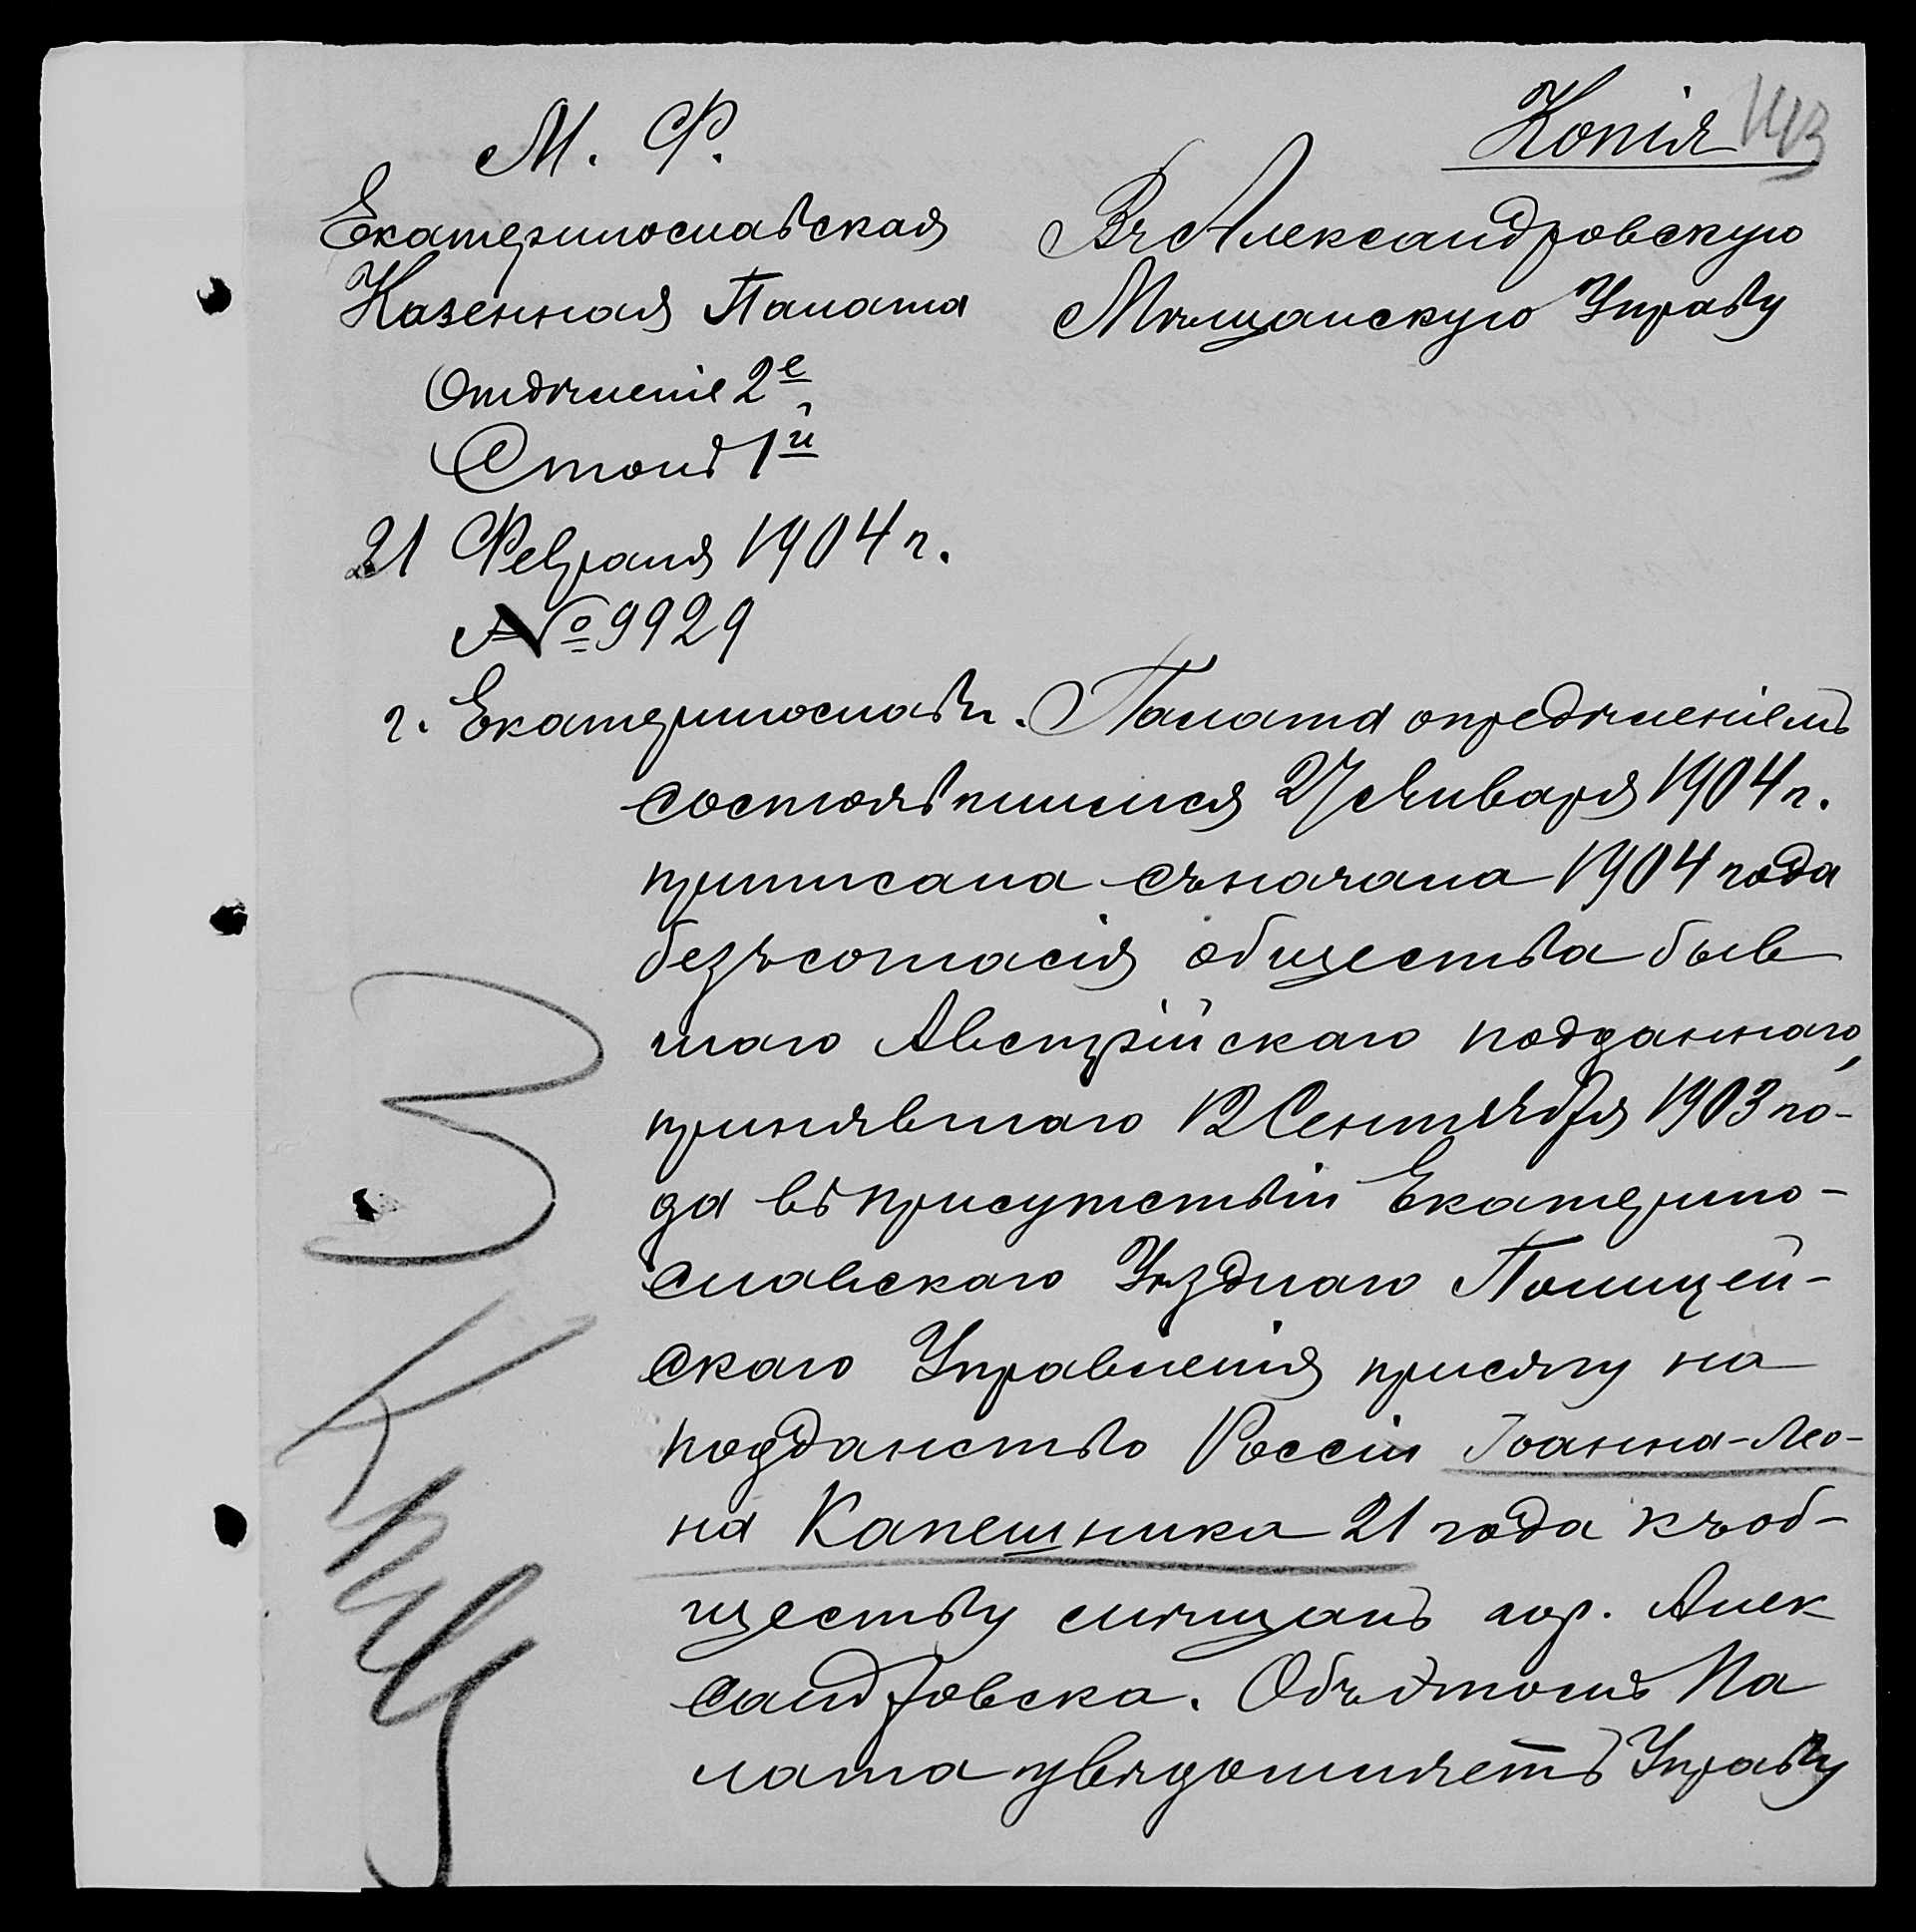 Копія
М. Ф.
Екатеринославская
Казенная Палата
Отдѣленіе 2е
Столъ 1й
21 Февраля 1904 г.
№ 9929
г. Екатеринославъ.
Въ Александровскую
Мѣщанскую Управу
Палата опредѣленіемъ
состоявшимся 27 Января 1904 г.
приписала съ начала 1904 года
безъ согласія общества быв
шаго Австрійскаго подданнаго,
принявшаго 12 Сентября 1903 го-
да въ присутствіи Екатерино-
славскаго Уѣзднаго Полицей-
скаго Управленія присягу на
подданство Россіи Іоанна-Лео-
на Капешника 21 года къ об-
ществу мѣщанъ гор. Алек
сандровска. Объ этомъ Па
лата увѣдомляетъ Управу